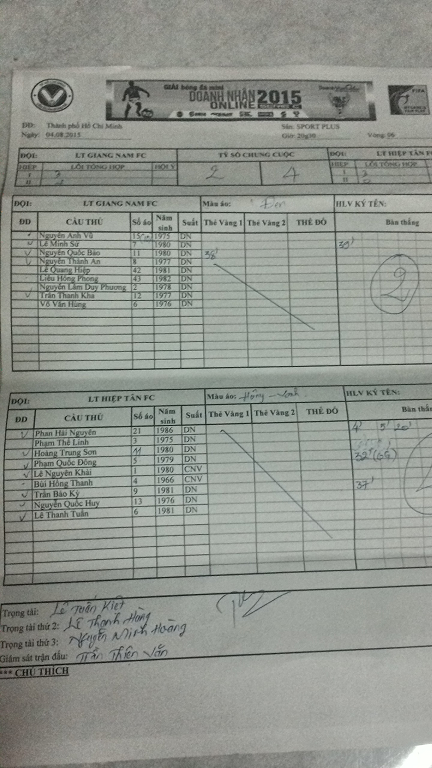 GIẢI bóng đá mini
DOANH NHÂN 2015
ONLINE
FIFA
ĐĐ: Thành phố Hồ Chí Minh Sân: SPORT PLUS
Ngày: 04.08.2015 Giờ: 20g30 Vòng: 06
ĐỘI: LT GIANG NAM FC TỶ SỐ CHUNG CUỘC ĐỘI: LT HIỆP TÂN FC
HIỆP LỖI TỔNG HỢP HỘI Ý 2 4 HIỆP LỖI TỔNG HỢP
I 3 I 3
II II
ĐỘI: LT GIANG NAM FC Màu áo: Đen HLV KÝ TÊN:
ĐD CẦU THỦ Số áo Năm sinh Suất Thẻ Vàng 1 Thẻ Vàng 2 THẺ ĐỎ Bàn thắng
Nguyễn Anh Vũ 1975 DN
Lê Minh Sứ 7 1980 DN 30'
Nguyễn Quốc Bảo 11 1980 DN 38'
Nguyễn Thành An 8 1977 DN
Lê Quang Hiệp 42 1981 DN
Liêu Hồng Phong 43 1982 DN
Nguyễn Lâm Duy Phương 2 1978 DN
Trần Thanh Kha 12 1977 DN
Võ Văn Hùng 6 1976 DN
2
ĐỘI: LT HIỆP TÂN FC Màu áo: Hồng - xanh HLV KÝ TÊN:
ĐD CẦU THỦ Số áo Năm sinh Suất Thẻ Vàng 1 Thẻ Vàng 2 THẺ ĐỎ Bàn thắng
Phan Hải Nguyên 21 1986 DN 4' 5' 20'
Phạm Thế Linh 3 1975 DN
Hoàng Trung Sơn 11 1980 DN
Phạm Quốc Đông 5 1979 DN 32'
Lê Nguyên Khải 1 1980 CNV
Bùi Hồng Thanh 4 1966 CNV 37'
Trần Bảo Kỳ 9 1981 DN
Nguyễn Quốc Huy 13 1976 DN
Lê Thanh Tuấn 6 1981 DN
Trọng tài: Lê Tuấn Kiệt
Trọng tài thứ 2: Lê Thanh Hồng
Trọng tài thứ 3: Nguyễn Minh Hoàng
Giám sát trận đấu: Trần Thiên Vân
*** CHÚ THÍCH